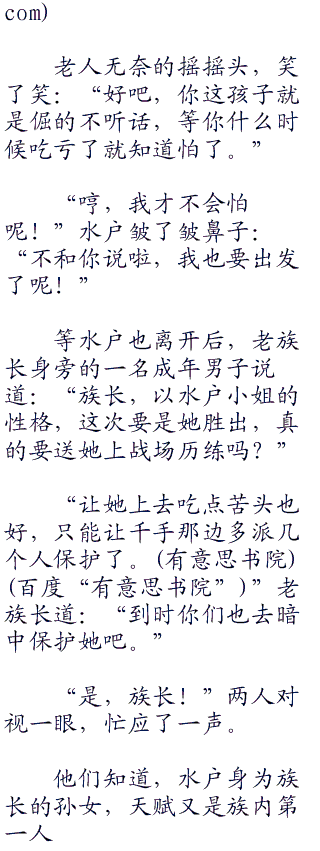 com)
老人无奈的摇摇头，笑
了笑：“好吧，你这孩子就
是倔的不听话，等你什么时
候吃亏了就知道怕了。”
“哼，我才不会怕
呢！”水户皱了皱鼻子：
“不和你说啦，我也要出发
了呢！”
等水户也离开后，老族
长身旁的一名成年男子说
道：“族长，以水户小姐的
性格，这次要是她胜出，真
的要送她上战场历练吗？”
“让她上去吃点苦头也
好，只能让千手那边多派几
个人保护了。(有意思书院)
(百度“有意思书院”)”老
族长道：“到时你们也去暗
中保护她吧。”
“是，族长！”两人对
视一眼，忙应了一声。
他们知道，水户身为族
长的孙女，天赋又是族内第
一人